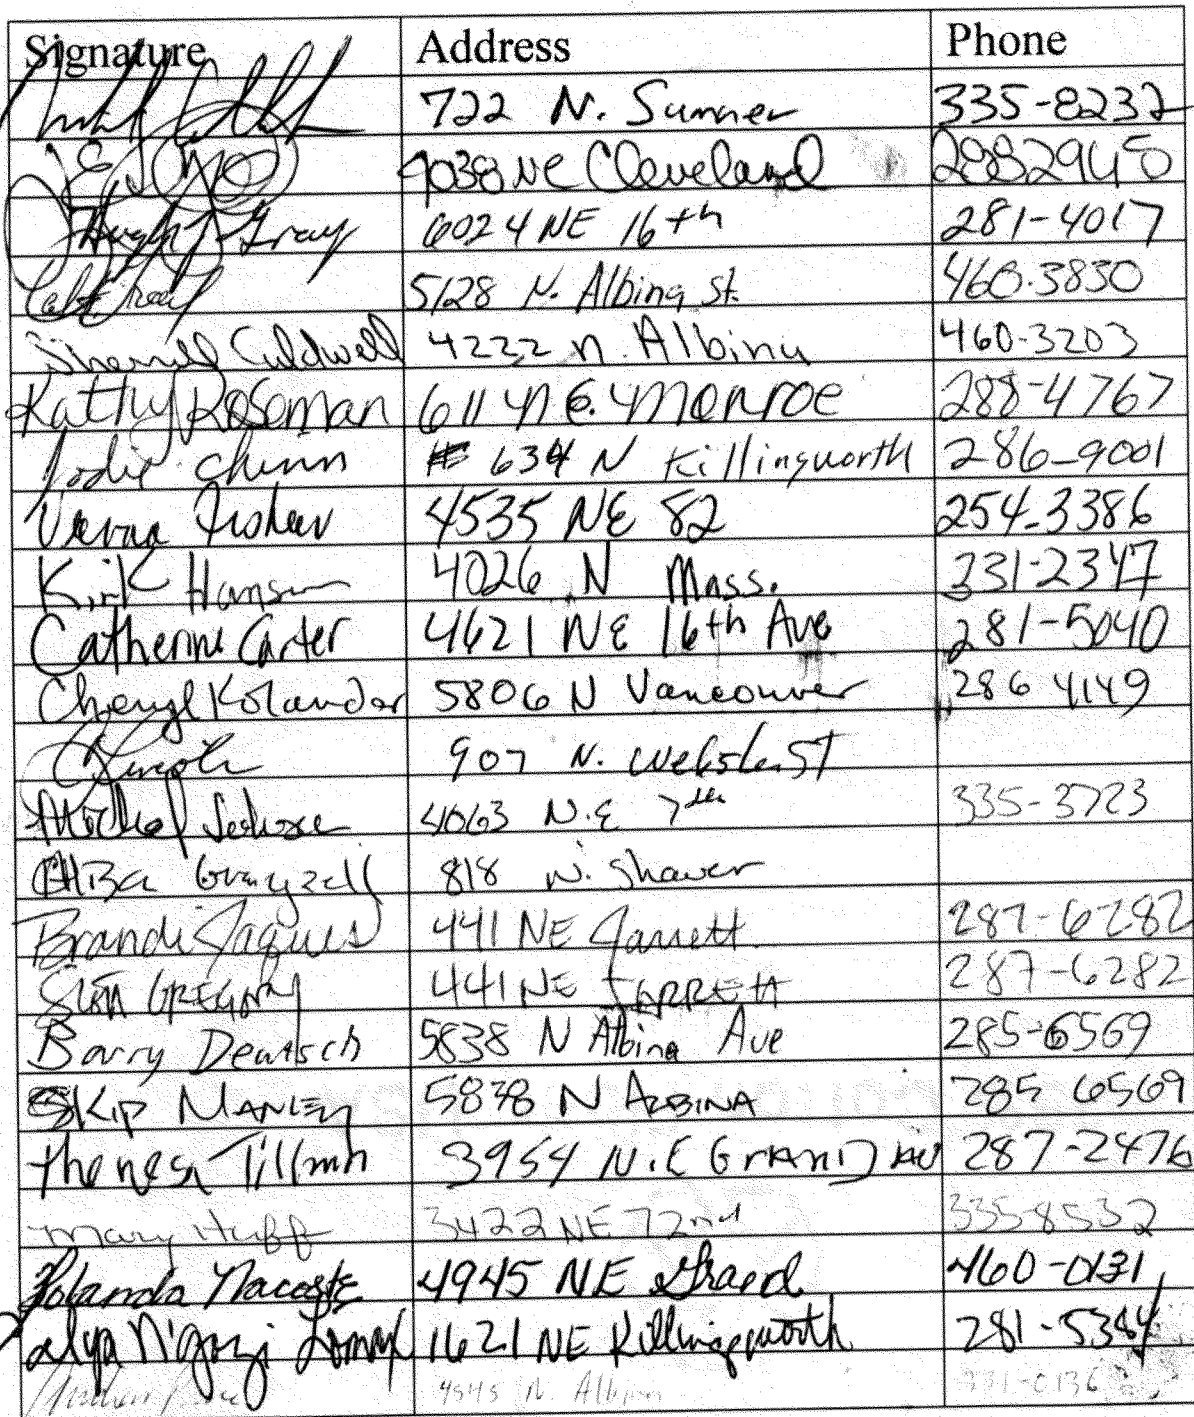 Signature Address Phone
722 N. Sumner 335-8232
4038 NE Cleveland 2882948
Gray 6024 NE 16th 281-4017
5128 N. Albina St. 460-3830
Sherrell Caldwell 4222 N. Albina 460-3203
Kathy Roseman 611 N.E. Monroe 288-4767
Jodie Chinn 634 N Killingsworth 286-9001
Verna Fisher 4535 NE 82 254-3386
Kirk Hansen 4026 N Mass. 331-2347
Catherine Carter 4621 NE 16th Ave 281-5040
Cheryl Kolander 5806 N Vancouver 286 4149
907 N. Webster ST
Michael 4063 N.E 7th 335-3723
818 N. Shaver
Brandi Jaques 441 NE Jarrett 287-6282
GREGORY 441 NE JARRETT 287-6282
Barry Deutsch 5838 N Albina Ave 285-6569
SKIP MANLEY 5838 N ALBINA 285 6569
Theresa Tillman 3954 N.E GRAND AV 287-2476
Mary Huff 3422 NE 72nd 335 8532
Yolanda Nacoste 4945 NE Grand 460-0131
Ngozi 1621 NE Killingsworth 281-5384
4545 N. Albina 331-0136